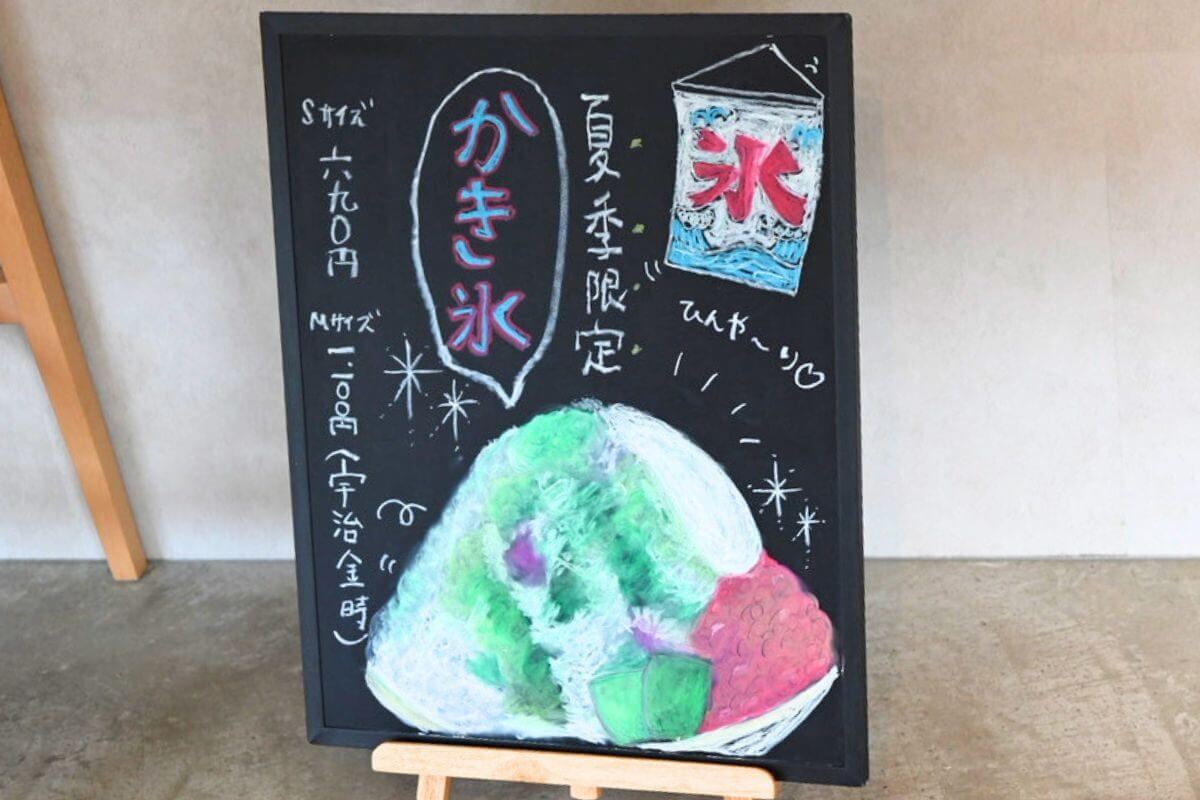 氷
ひんや～り♡
夏季限定
かき氷
Sサイズ 六九0円
Mサイズ 一、二00円(宇治金時)